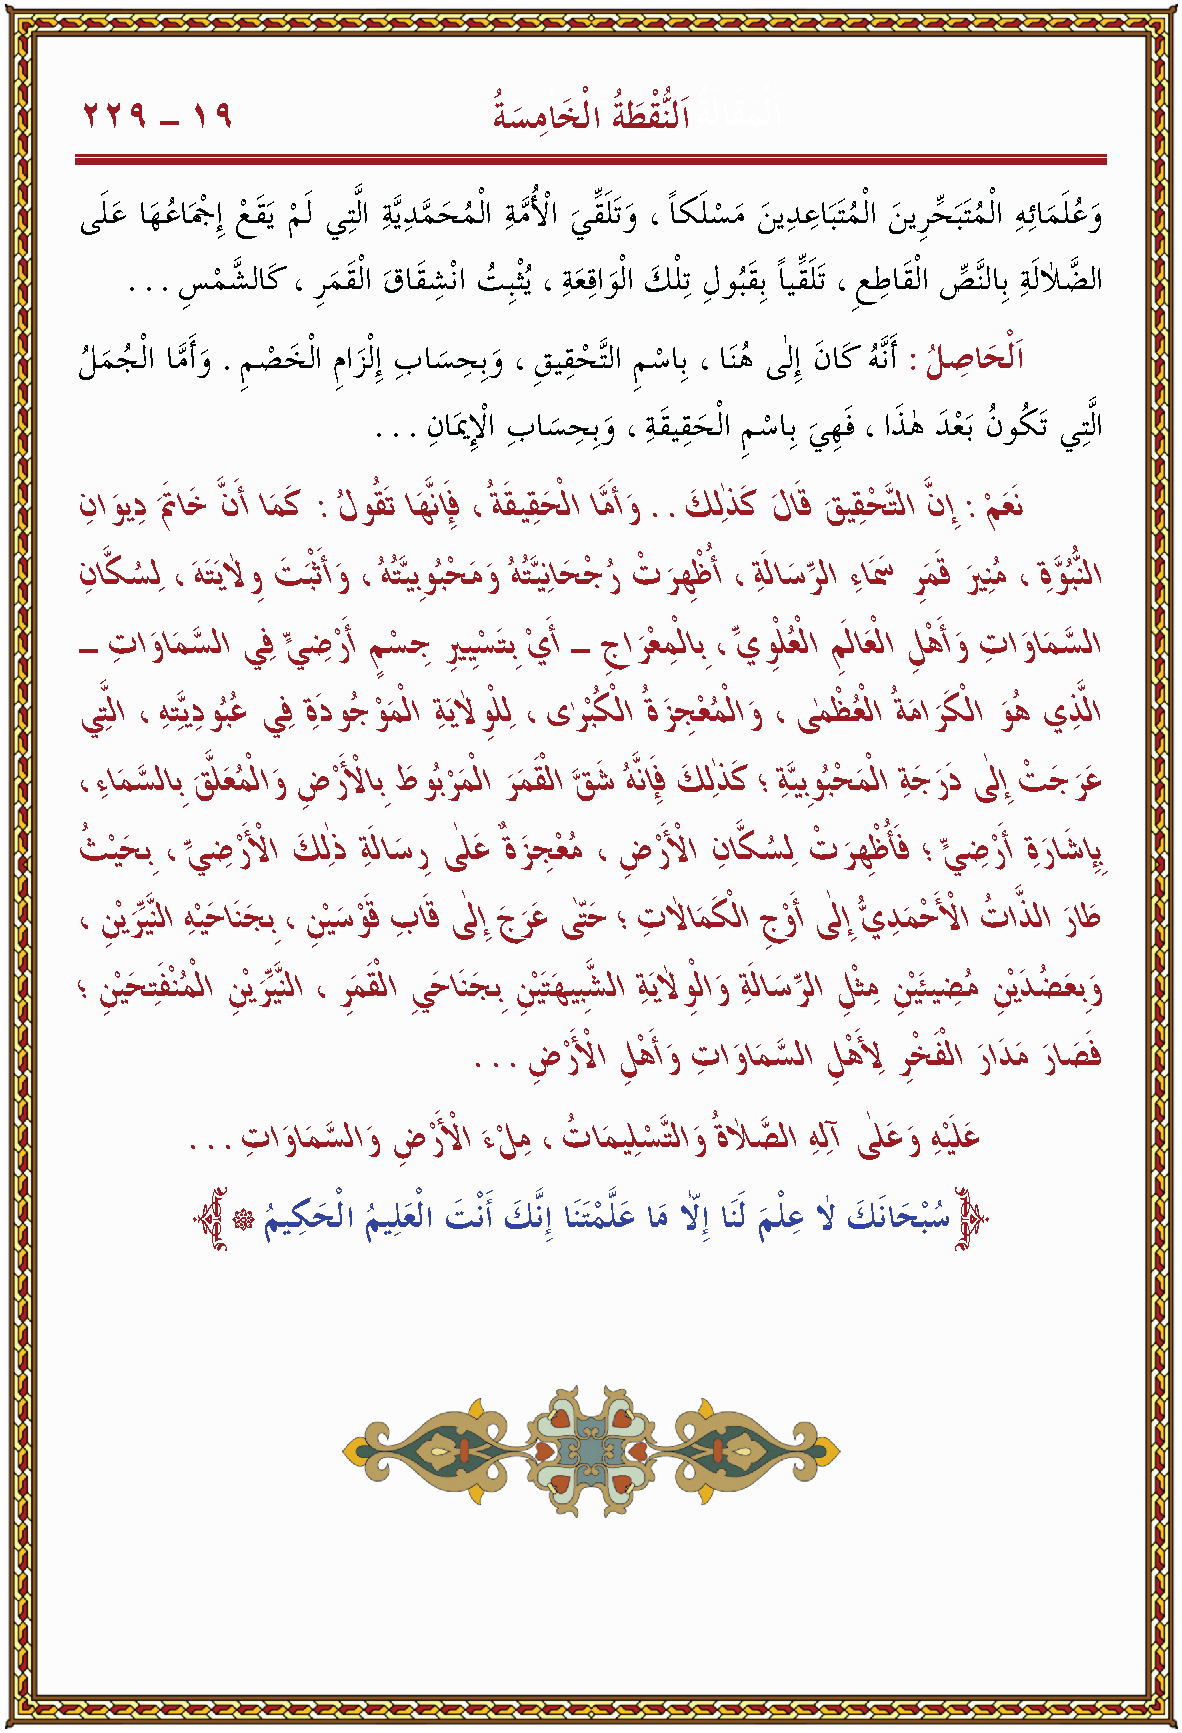 اَلنُّقْطَةُ الْخَامِسَةُ ١٩ - ٢٢٩
وَعُلَمَائِهِ الْمُتَبَحِّرِينَ الْمُتَبَاعِدِينَ مَسْلَكاً ، وَتَلَقِّيَ الْأُمَّةِ الْمُحَمَّدِيَّةِ الَّتِي لَمْ يَقَعْ إِجْمَاعُهَا عَلَى
الضَّلَالَةِ بِالنَّصِّ الْقَاطِعِ ، تَلَقِّياً بِقَبُولِ تِلْكَ الْوَاقِعَةِ ، يُثْبِتُ انْشِقَاقَ الْقَمَرِ ، كَالشَّمْسِ . . .
اَلْحَاصِلُ : أَنَّهُ كَانَ إِلَى هُنَا ، بِاسْمِ التَّحْقِيقِ ، وَبِحِسَابِ إِلْزَامِ الْخَصْمِ . وَأَمَّا الْجُمَلُ
الَّتِي تَكُونُ بَعْدَ هٰذَا ، فَهِيَ بِاسْمِ الْحَقِيقَةِ ، وَبِحِسَابِ الْإِيمَانِ . . .
نَعَمْ : إِنَّ التَّحْقِيقَ قَالَ كَذٰلِكَ . . وَأَمَّا الْحَقِيقَةُ ، فَإِنَّهَا تَقُولُ : كَمَا أَنَّ خَاتَمَ دِيوَانِ
النُّبُوَّةِ ، مُنِيرَ قَمَرِ سَمَاءِ الرِّسَالَةِ ، أُظْهِرَتْ رُجْحَانِيَّتُهُ وَمَحْبُوبِيَّتُهُ ، وَأَثْبَتَتْ وِلَايَتَهَ ، لِسُكَّانِ
السَّمَاوَاتِ وَأَهْلِ الْعَالَمِ الْعُلْوِيِّ ، بِالْمِعْرَاجِ - أَيْ بِتَسْيِيرِ جِسْمٍ أَرْضِيٍّ فِي السَّمَاوَاتِ -
الَّذِي هُوَ الْكَرَامَةُ الْعُظْمٰى ، وَالْمُعْجِزَةُ الْكُبْرٰى ، لِلْوِلَايَةِ الْمَوْجُودَةِ فِي عُبُودِيَّتِهِ ، الَّتِي
عَرَجَتْ إِلَى دَرَجَةِ الْمَحْبُوبِيَّةِ ؛ كَذٰلِكَ فَإِنَّهُ شَقَّ الْقَمَرَ الْمَرْبُوطَ بِالْأَرْضِ وَالْمُعَلَّقَ بِالسَّمَاءِ ،
بِإِشَارَةِ أَرْضِيٍّ ؛ فَأُظْهِرَتْ لِسُكَّانِ الْأَرْضِ ، مُعْجِزَةٌ عَلَى رِسَالَةِ ذٰلِكَ الْأَرْضِيِّ ، بِحَيْثُ
طَارَ الذَّاتُ الْأَحْمَدِيُّ إِلَى أَوْجِ الْكَمَالَاتِ ؛ حَتَّى عَرَجَ إِلَى قَابِ قَوْسَيْنِ ، بِجَنَاحَيْهِ النَّيِّرَيْنِ ،
وَبِعَضُدَيْنِ مُضِيئَيْنِ مِثْلِ الرِّسَالَةِ وَالْوِلَايَةِ الشَّبِيهَتَيْنِ بِجَنَاحَيِ الْقَمَرِ ، النَّيِّرَيْنِ الْمُنْفَتِحَيْنِ ؛
فَصَارَ مَدَارَ الْفَخْرِ لِأَهْلِ السَّمَاوَاتِ وَأَهْلِ الْأَرْضِ . . .
عَلَيْهِ وَعَلَى آلِهِ الصَّلَاةُ وَالتَّسْلِيمَاتُ ، مِلْءَ الْأَرْضِ وَالسَّمَاوَاتِ . . .
﴿سُبْحَانَكَ لَا عِلْمَ لَنَا إِلَّا مَا عَلَّمْتَنَا إِنَّكَ أَنْتَ الْعَلِيمُ الْحَكِيمُ ۞﴾